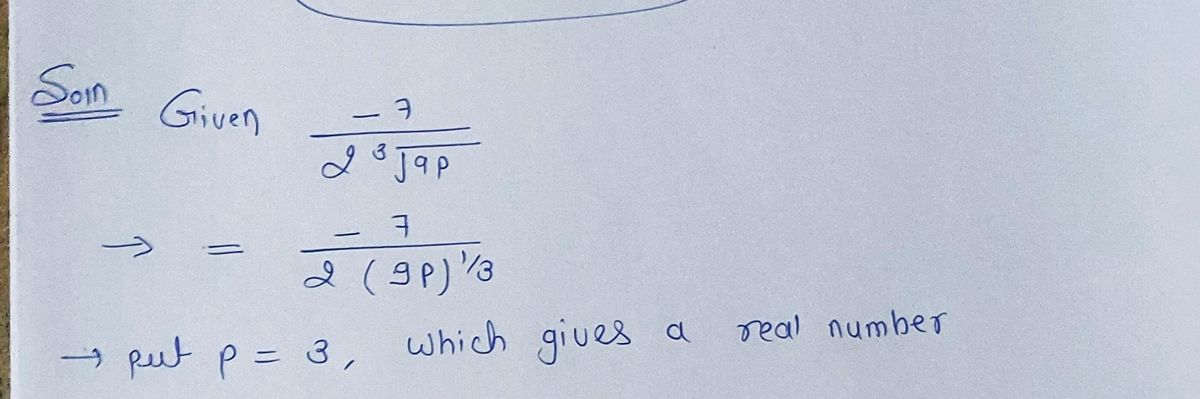 Soln Given -7 / 2 ³√9p
→ = -7 / 2 (9p)^1/3
→ put p = 3, which gives a real number